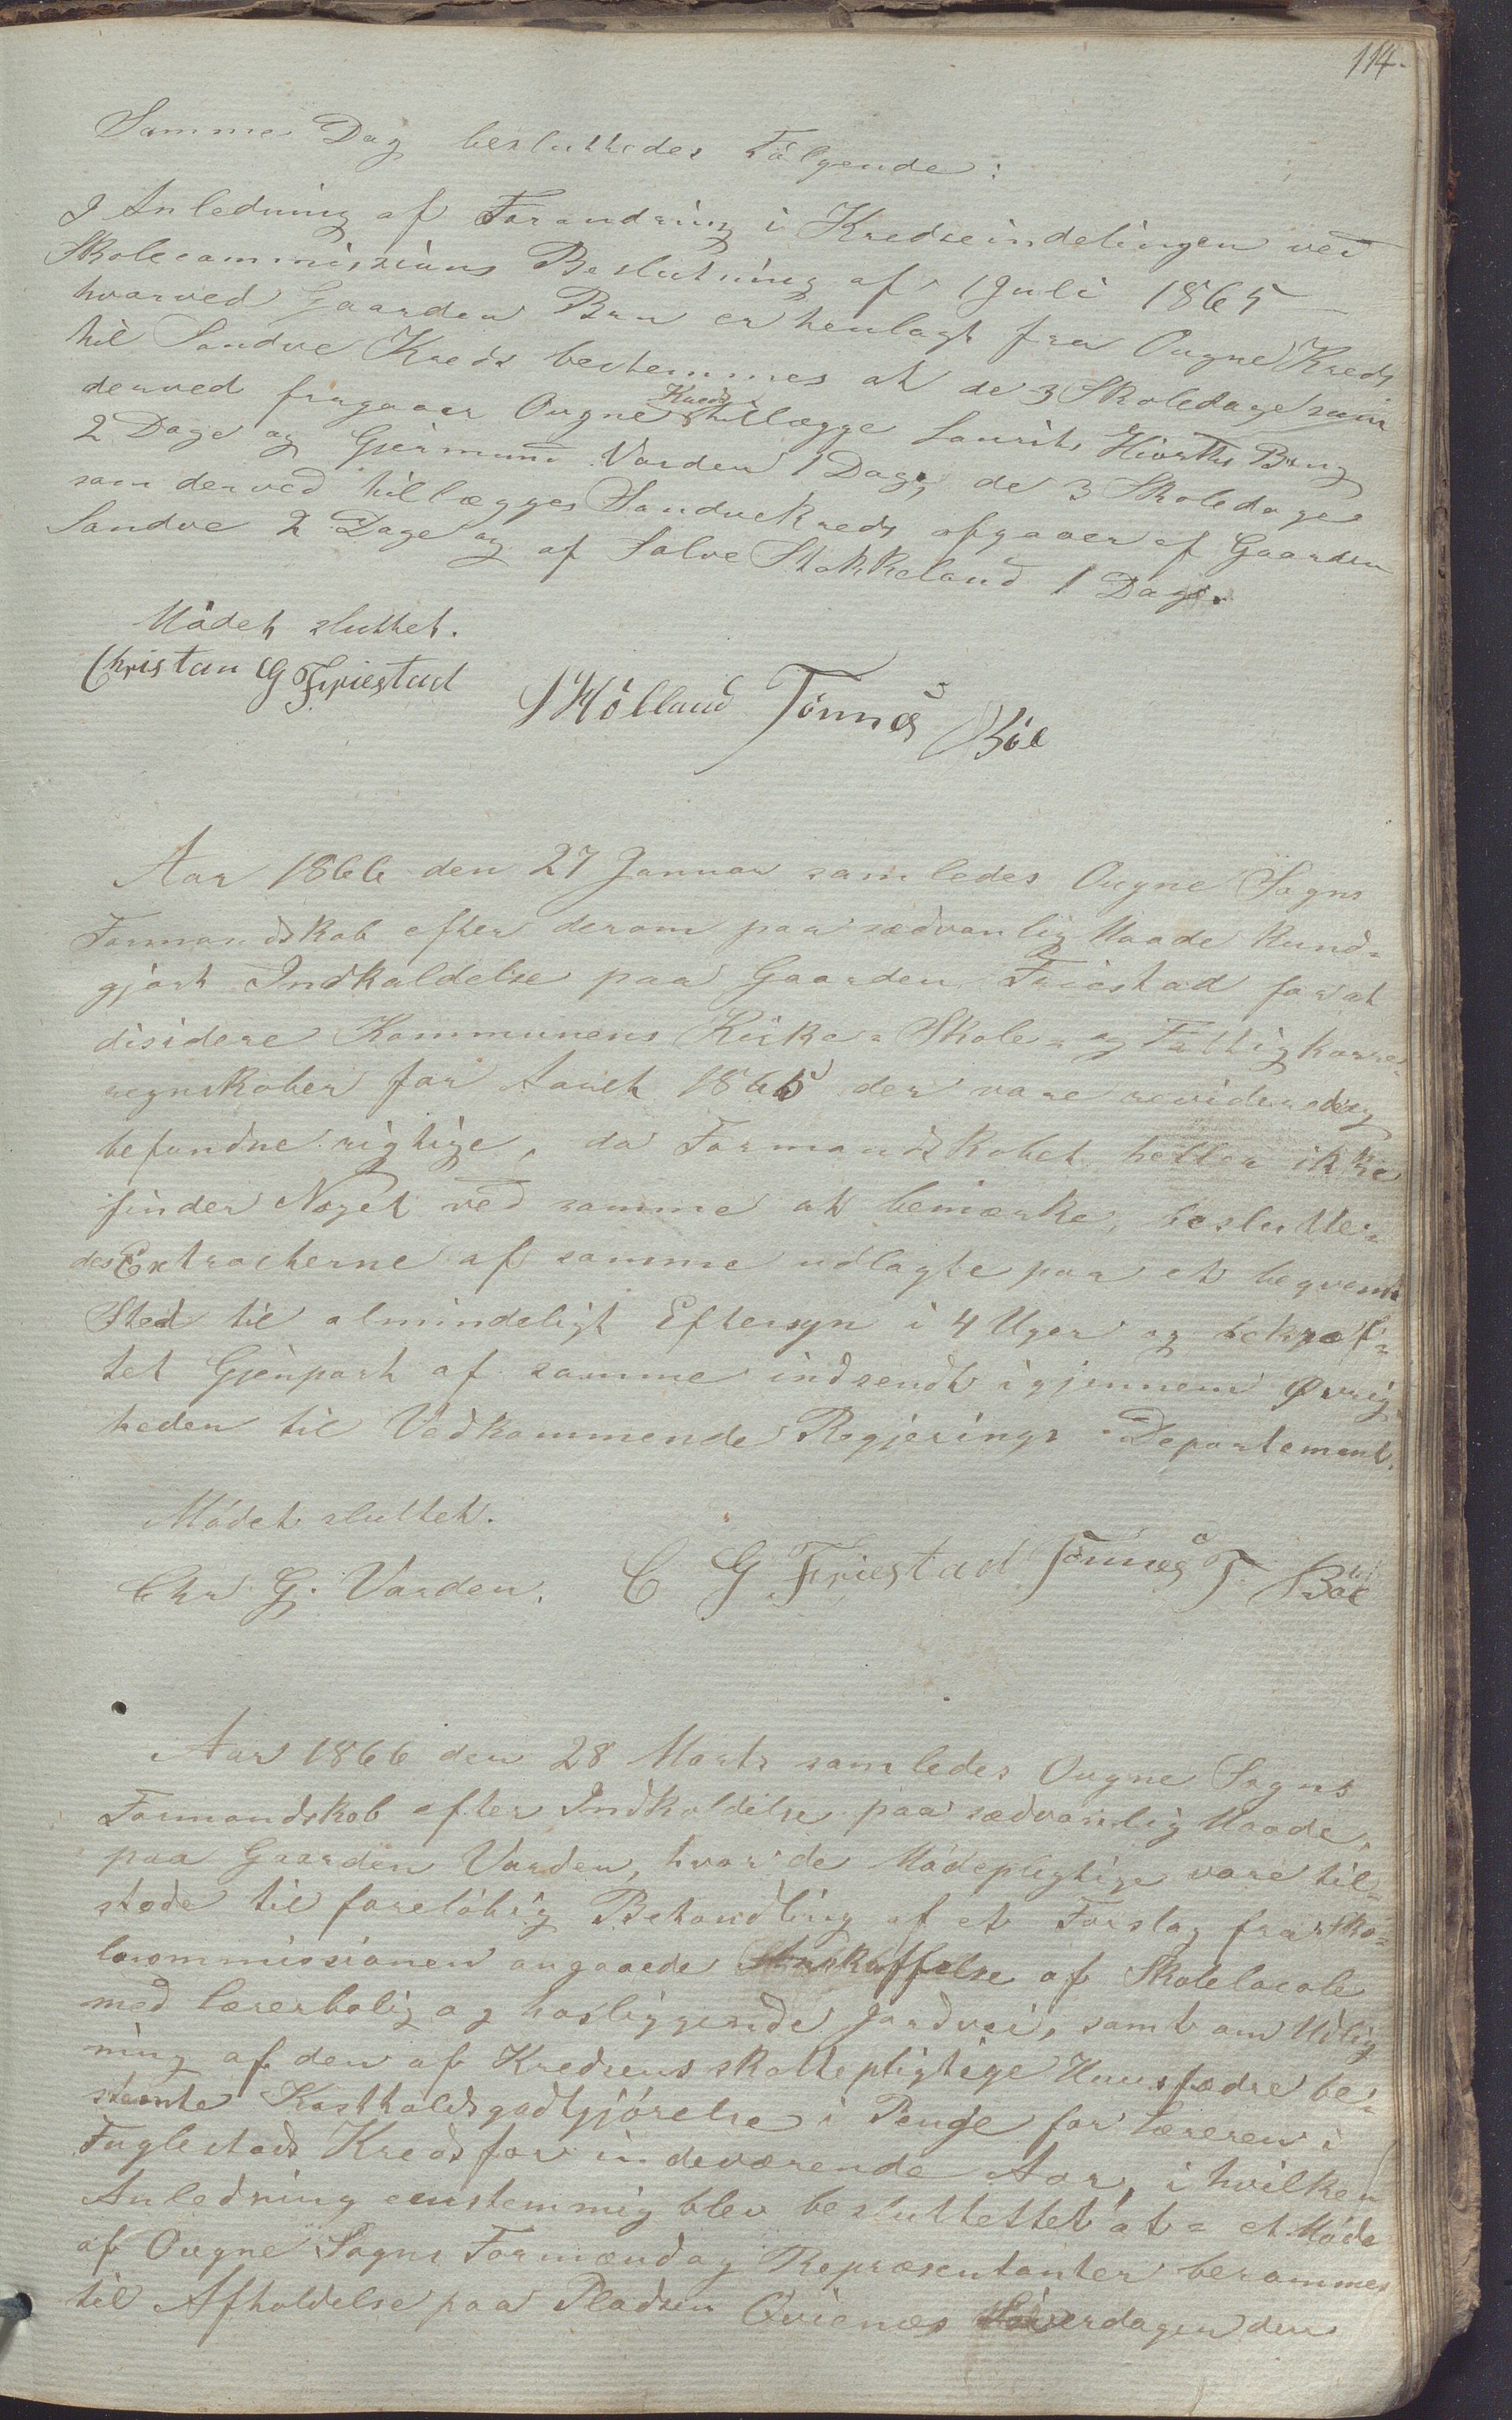 114.
Samme Dag besluttedes Følgende:
I Anledning af Forandring i Kredseindelingen ved
Skolecommissions Beslutning af 1 Juli 1865
hvorved Gaarden Bru er henlagt fra Ougne Kreds
til Sandve Kreds bestemmes at de 3 Skoledage som
derved fragaaer Ougne Kreds tillægge Laurits Hiorths Brug
2 Dage og Gjermund Varden 1 Dag, de 3 Skoledage
som derved tillægges Sandve Kreds afgaaer af Gaarden
Sandve 2 Dage og af Salve Stokkeland 1 Dag.
Mødet sluttet.
Christan G Friestad
Hølland Tønnes Bøe
Aar 1866 den 27 Januar samledes Ougne Sogns
Formandskab efter derom paa sædvanlig Maade kund-
gjort Indkaldelse paa Gaarden Friestad for at
disidere Kommunens Kirke- Skole- og Fattigkasse-
regnskaber for Aaret 1865 der vare reviderede og
befundne rigtige, da Formandskabet heller ikke
finder Noget ved samme at bemærke, beslutte-
des Extracterne af samme udlagte paa et beqvemt
Sted til almindeligt Eftersyn i 4 Uger og bekræf-
tet Gjenpart af samme indsendt igjennem Øvrig-
heden til Vedkommende Regjerings-Departement.
Mødet sluttet.
Chr G. Varden. C G Friestad Tønnes T Bøe
Aar 1866 den 28 Marts samledes Ougne Sogns
Formandskab efter Indkaldelse paa sædvanlig Maade
paa Gaarden Varden, hvor de Mødepligtige vare til-
stede til foreløbig Behandling af et Forslag fra Sko-
lecommissionen angaaede Anskaffelse af Skolelocale
med lærerbolig og hosliggende Jordvei, samt om Udlig
ning af den af Kredsens skattepligtige Huusfædre be-
stemte Kostholdsgodtgjørelse i Penge for læreren i
Fuglestads Kreds for indeværende Aar, i hvilken
Anledning eenstemmig blev besluttettet at et Møde
af Ougne Sogns Formænd og Repræsentanter berammes
til Afholdelse paa Pladsen Qvienæs Løverdagen den